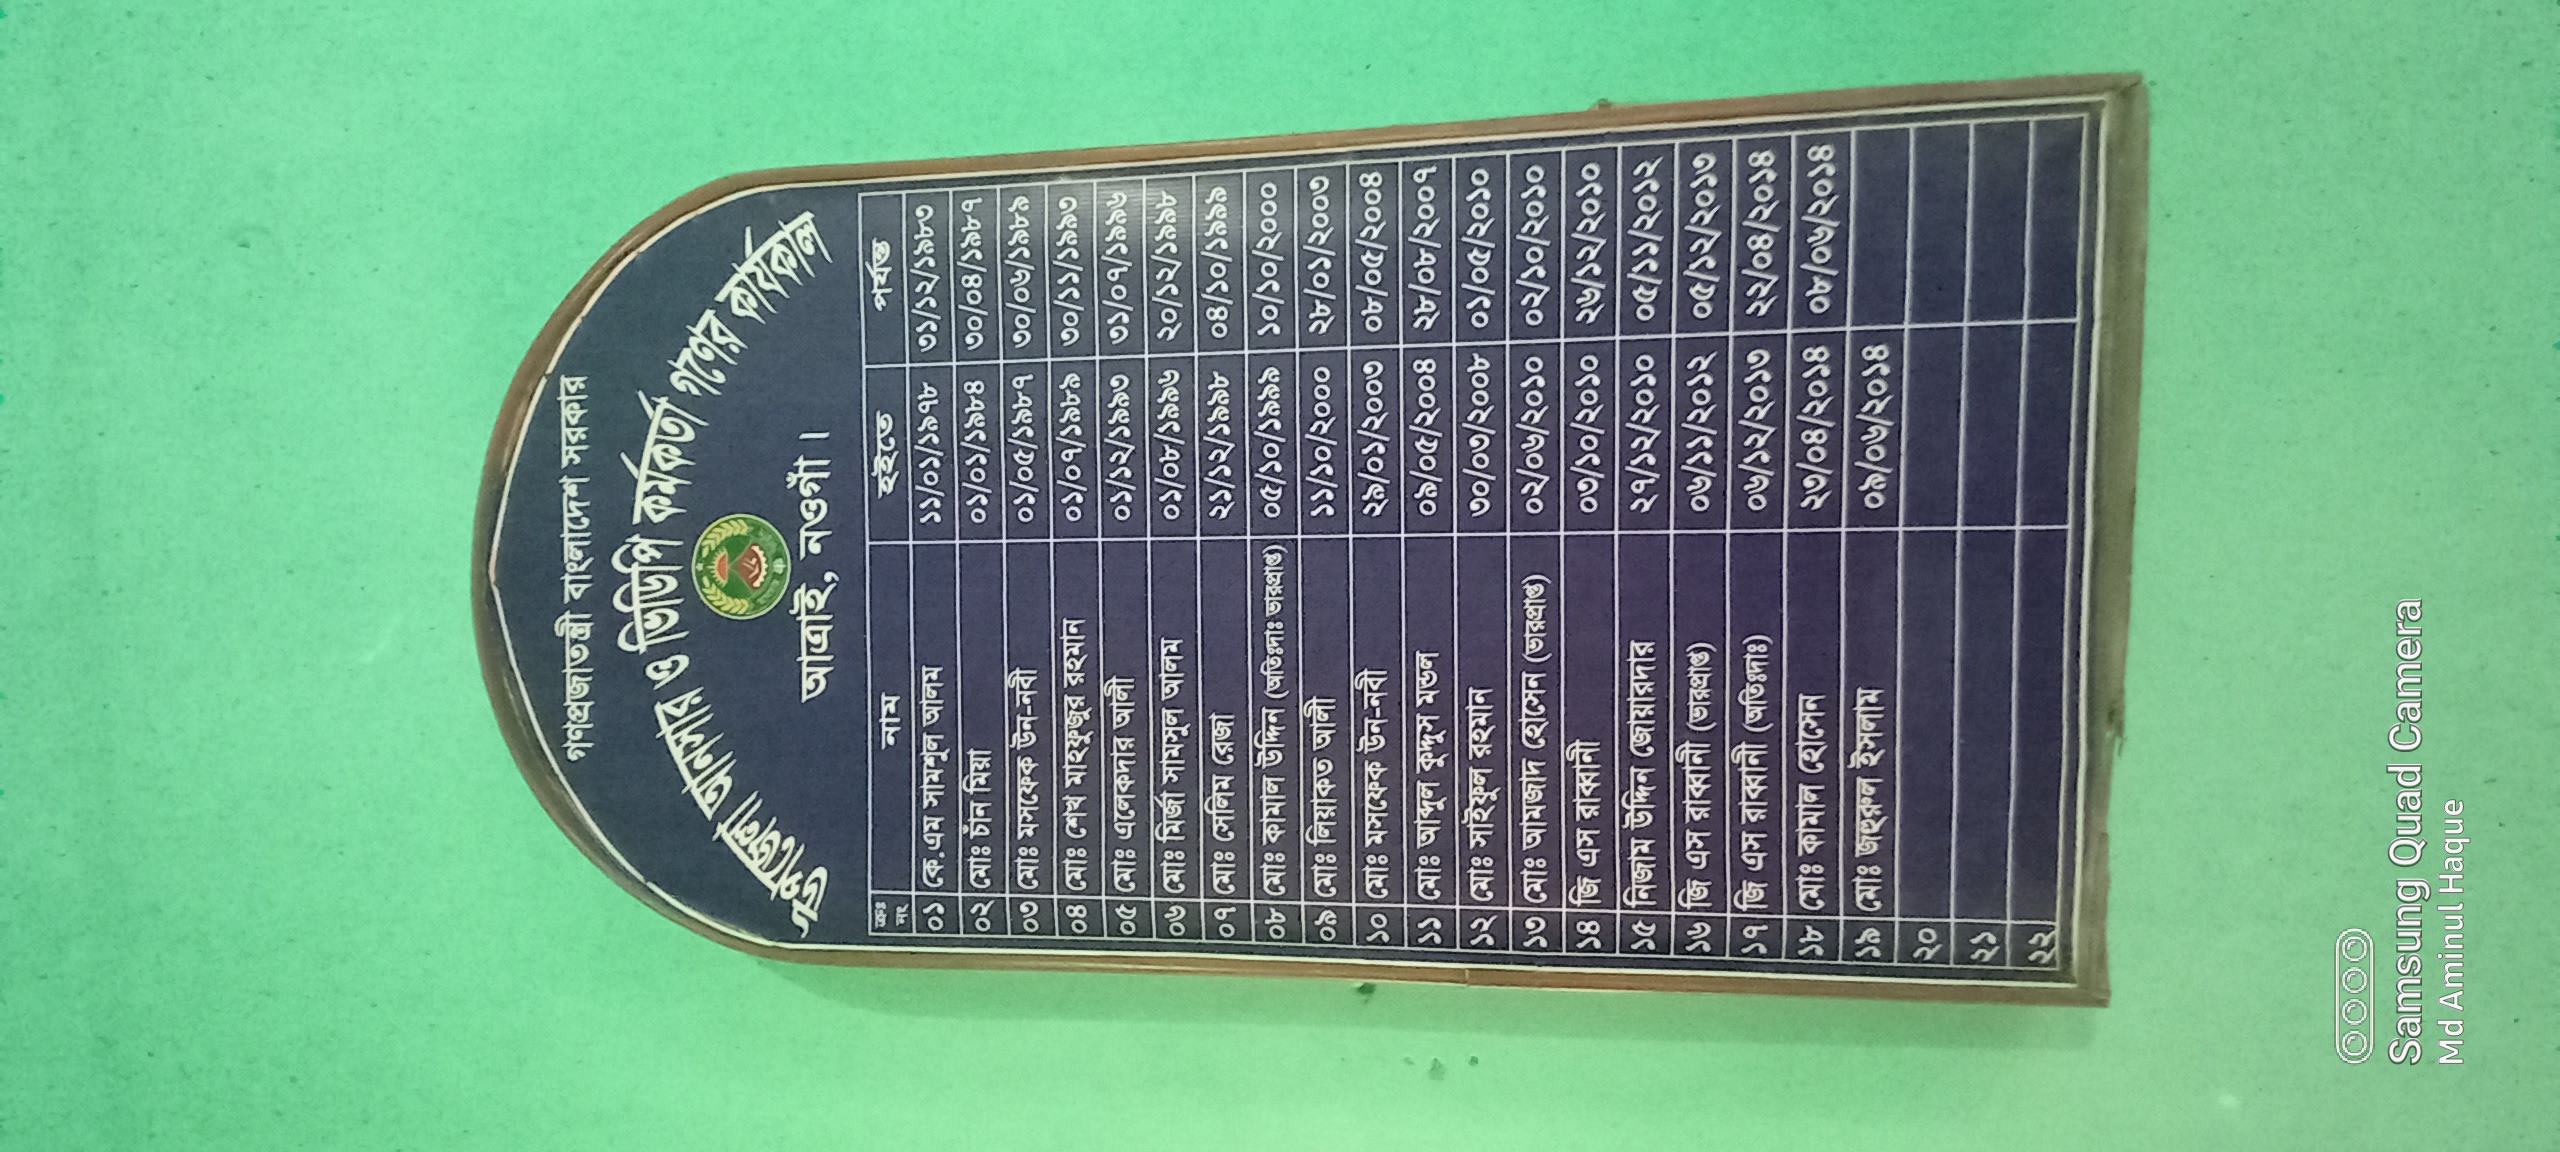 গণপ্রজাতন্ত্রী বাংলাদেশ সরকার
উপজেলা আনসার ও ভিডিপি কর্মকর্তা গণের কার্যকাল
আত্রাই, নওগাঁ।
ক্রঃ নং নাম হইতে পর্যন্ত
০১ কে.এম সামশুল আলম ১১/০১/১৯৭৮ ৩১/১২/১৯৮৩
০২ মোঃ চাঁন মিয়া ০১/০১/১৯৮৪ ৩০/০৪/১৯৮৭
০৩ মোঃ মসফেক উন-নবী ০১/০৫/১৯৮৭ ৩০/০৬/১৯৮৯
০৪ মোঃ শেখ মাহফুজুর রহমান ০১/০৭/১৯৮৯ ৩০/১১/১৯৯৩
০৫ মোঃ এলেকদার আলী ০১/১২/১৯৯৩ ৩১/০৭/১৯৯৬
০৬ মোঃ মির্জা সামসুল আলম ০১/০৮/১৯৯৬ ২০/১২/১৯৯৮
০৭ মোঃ সেলিম রেজা ২১/১২/১৯৯৮ ০৪/১০/১৯৯৯
০৮ মোঃ কামাল উদ্দিন (অতিঃদাঃ ভারপ্রাপ্ত) ০৫/১০/১৯৯৯ ১০/১০/২০০০
০৯ মোঃ লিয়াকত আলী ১১/১০/২০০০ ২৮/০১/২০০৩
১০ মোঃ মসফেক উন-নবী ২৯/০১/২০০৩ ০৮/০৫/২০০৪
১১ মোঃ আব্দুল কুদ্দুস মন্ডল ০৯/০৫/২০০৪ ২৮/০৮/২০০৭
১২ মোঃ সাইফুল রহমান ৩০/০৩/২০০৮ ০১/০৫/২০১০
১৩ মোঃ আমজাদ হোসেন (ভারপ্রাপ্ত) ০২/০৬/২০১০ ০২/১০/২০১০
১৪ জি এস রাব্বানী ০৩/১০/২০১০ ২৬/১২/২০১০
১৫ নিজাম উদ্দিন জোয়ারদার ২৭/১২/২০১০ ০৫/১১/২০১২
১৬ জি এস রাব্বানী (ভারপ্রাপ্ত) ০৬/১১/২০১২ ০৫/১২/২০১৩
১৭ জি এস রাব্বানী (অতিঃদাঃ) ০৬/১২/২০১৩ ২২/০৪/২০১৪
১৮ মোঃ কামাল হোসেন ২৩/০৪/২০১৪ ০৮/০৬/২০১৪
১৯ মোঃ জহুরুল ইসলাম ০৯/০৬/২০১৪
২০
২১
২২
Samsung Quad Camera
Md Aminul Haque